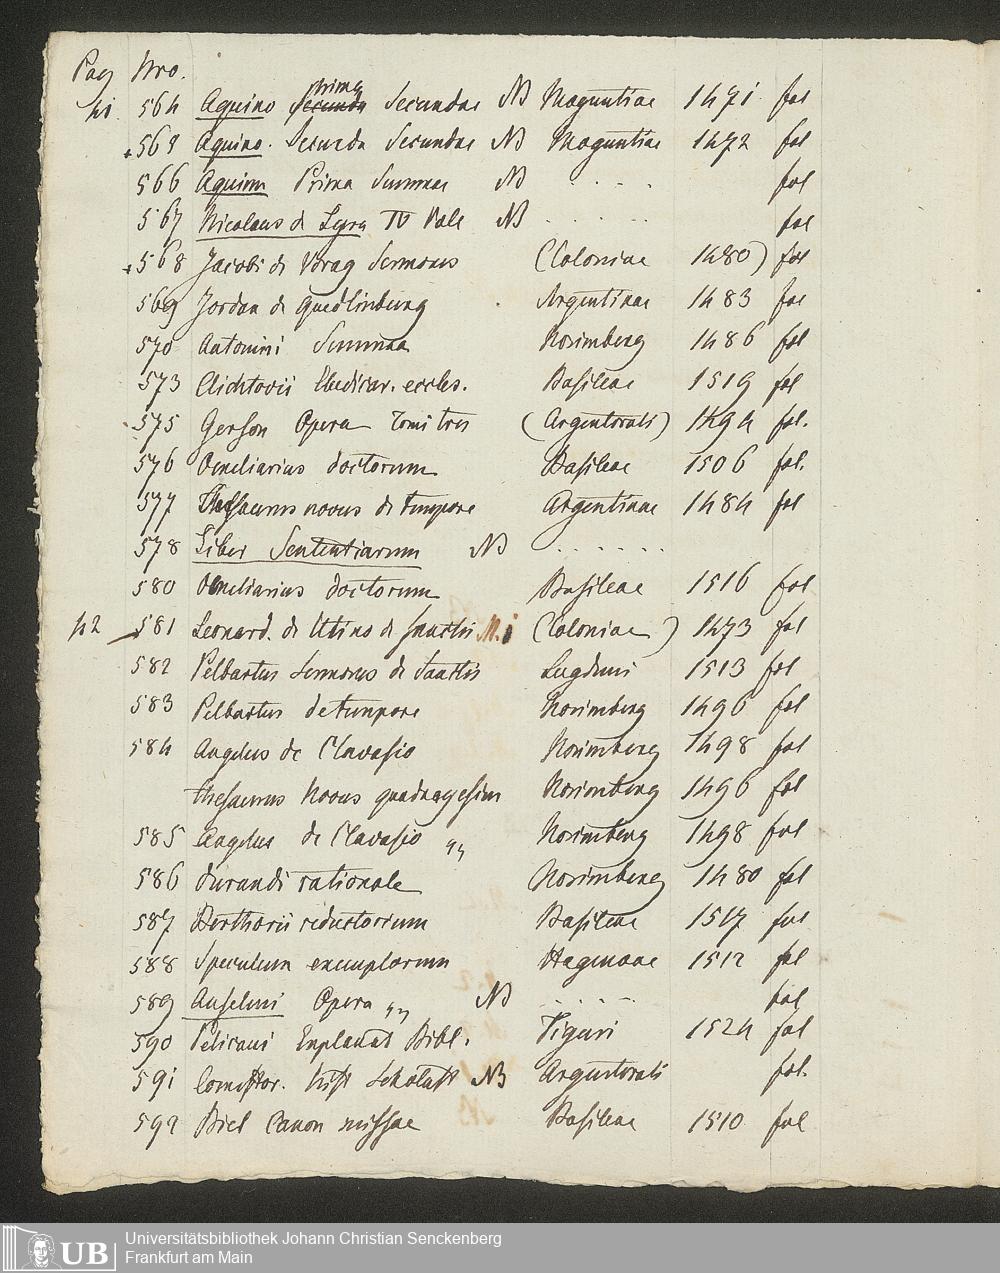 Pag Nro.
41. 564 Aquino Secunda prima Secundae NB Moguntiae 1471. fol
+565 Aquino. Secunda Secundae NB Moguntiae 1472 fol
566 Aquini Prima Summae NB . . . . . fol
567 Nicolaus de Lyra IV Vol NB . . . . . . fol
+568 Jacobi de Vorag Sermones (Coloniae 1480) fol
569 Jordan de Quedlinburg Argentinae 1483 fol
570 Antonini Summa Norimberg 1486 fol
573 Clichtovii Elucidar. eccles. Basileae 1519 fol
+575 Gerson Opera Tomi tres (Argentorati) 1494 fol.
576 Omeliarius doctorum Basileae 1506 fol.
577 Thesaurus novus de tempore Argentinae 1484 fol
578 Liber Sententiarum NB . . . . . . fol
580 Omeliarius doctorum Basileae 1516 fol
42 581 Leonard. de Utino de Sanctis (Coloniae) 1473 fol
582 Pelbartus Sermones de Sanctis Lugduni 1513 fol
583 Pelbartus de tempore Norimberg 1496 fol
584 Angelus de Clavasio Norimberg 1498 fol
Thesaurus Novus quadragesim Norimberg 1496 fol
585 Angelus de Clavasio Norimberg 1498 fol
586 Durandi rationale Norimberg 1480 fol
587 Berthorii reductorium Basileae 1517 fol
588 Speculum exemplorum Hagenoae 1512 fol
589 Anselmi Opera NB . . . . . fol
590 Pelicani Explanat Bibl. Tiguri 1524 fol
591 Comestor. hist Scholast NB Argentorati fol.
592 Biel Canon missae Basileae 1510 fol
UB
Universitätsbibliothek Johann Christian Senckenberg
Frankfurt am Main